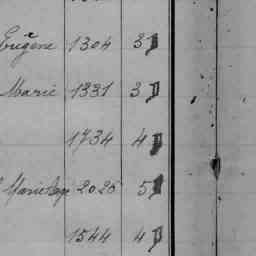 Eugène 1304 3
Marie 1331 3
1734 4
2026 5
1544 4